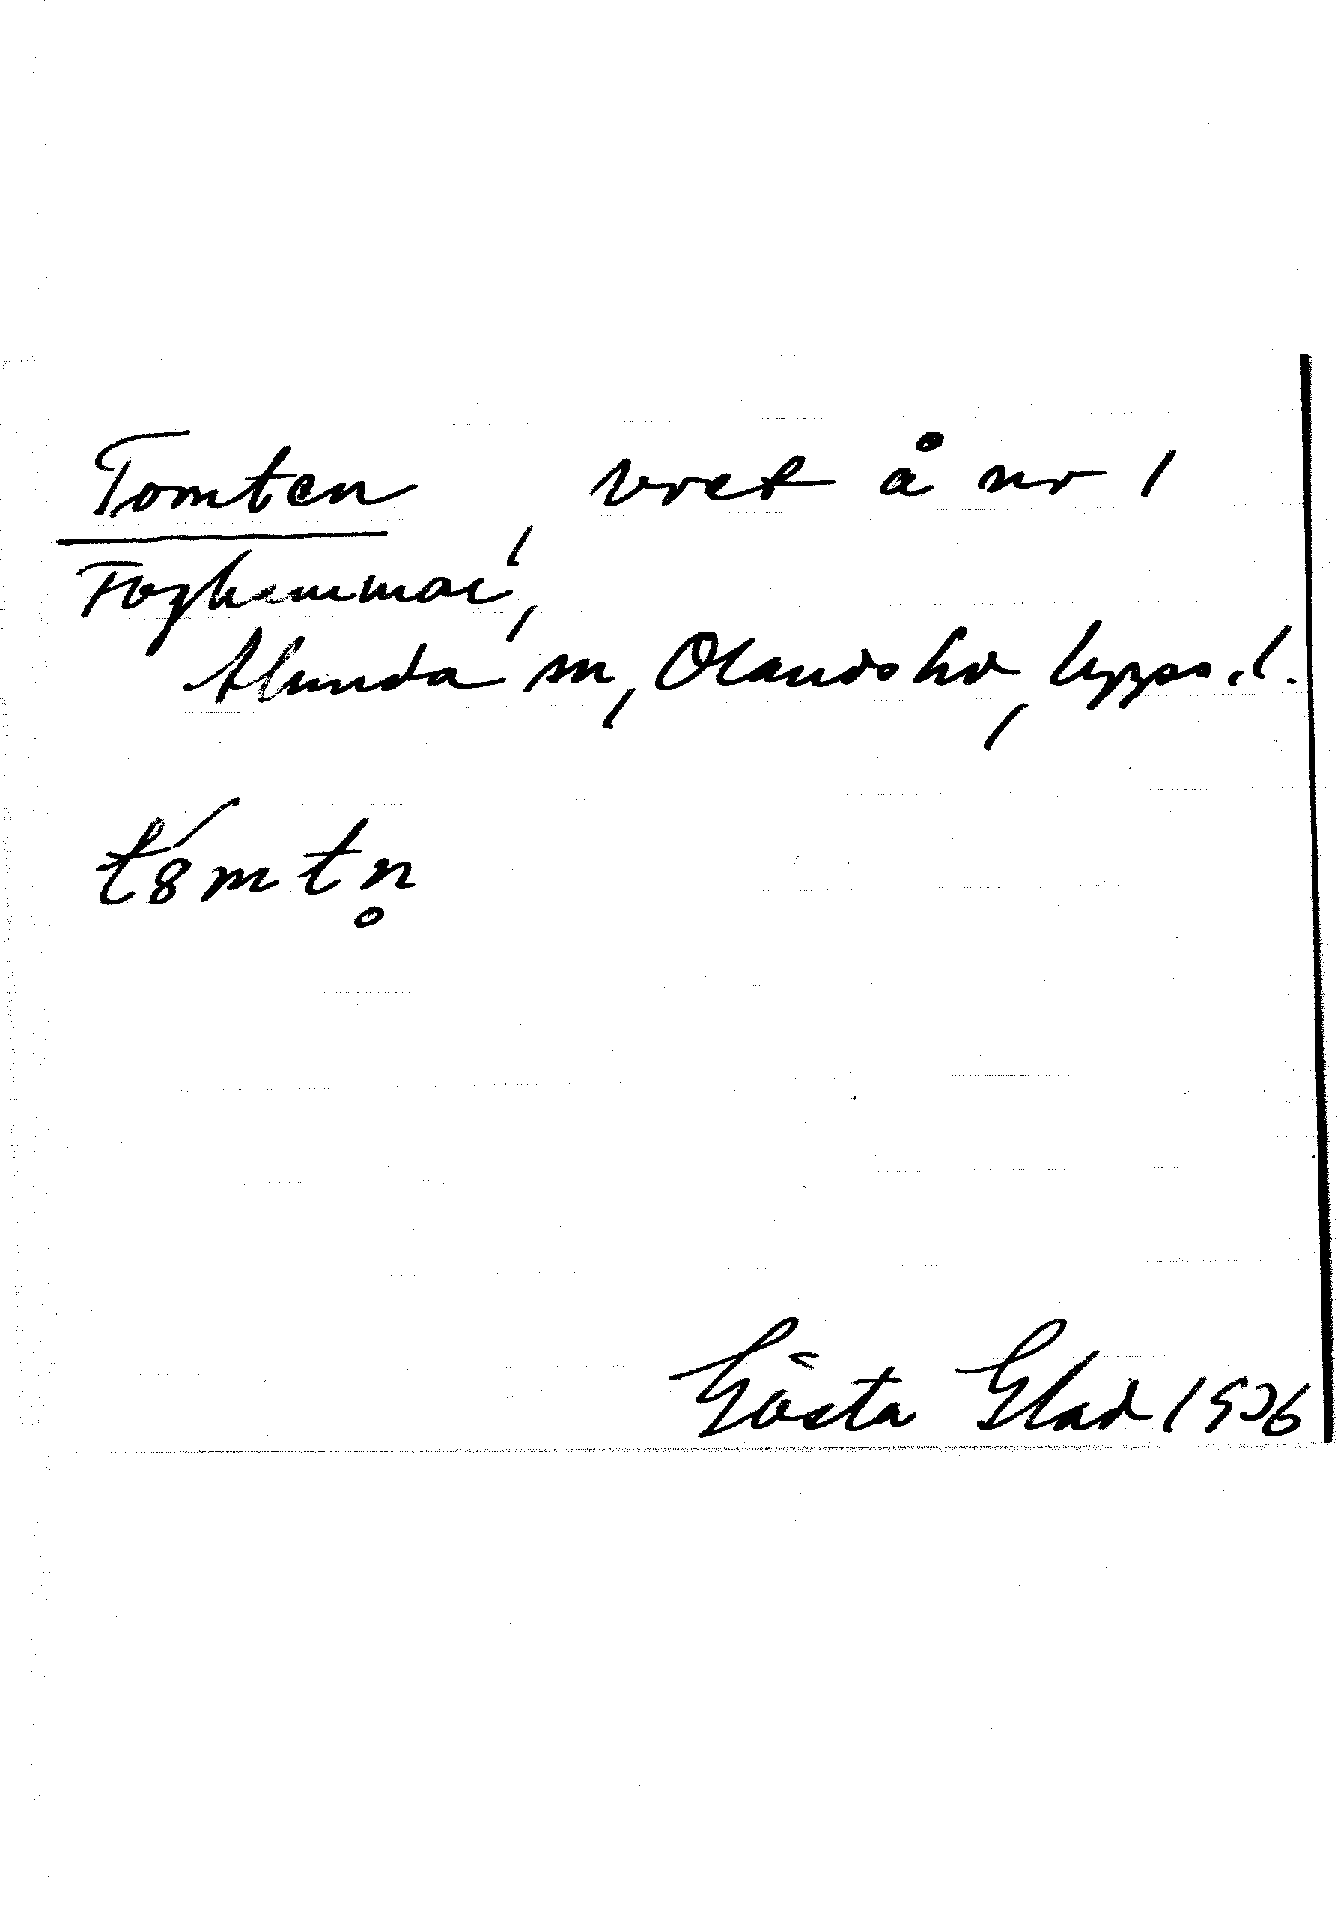 Tomten, vret å nr 1
Foghammar,
Alunda sn, Olands hd, Upps. l.
tómtn̥
Gösta Glad 1926